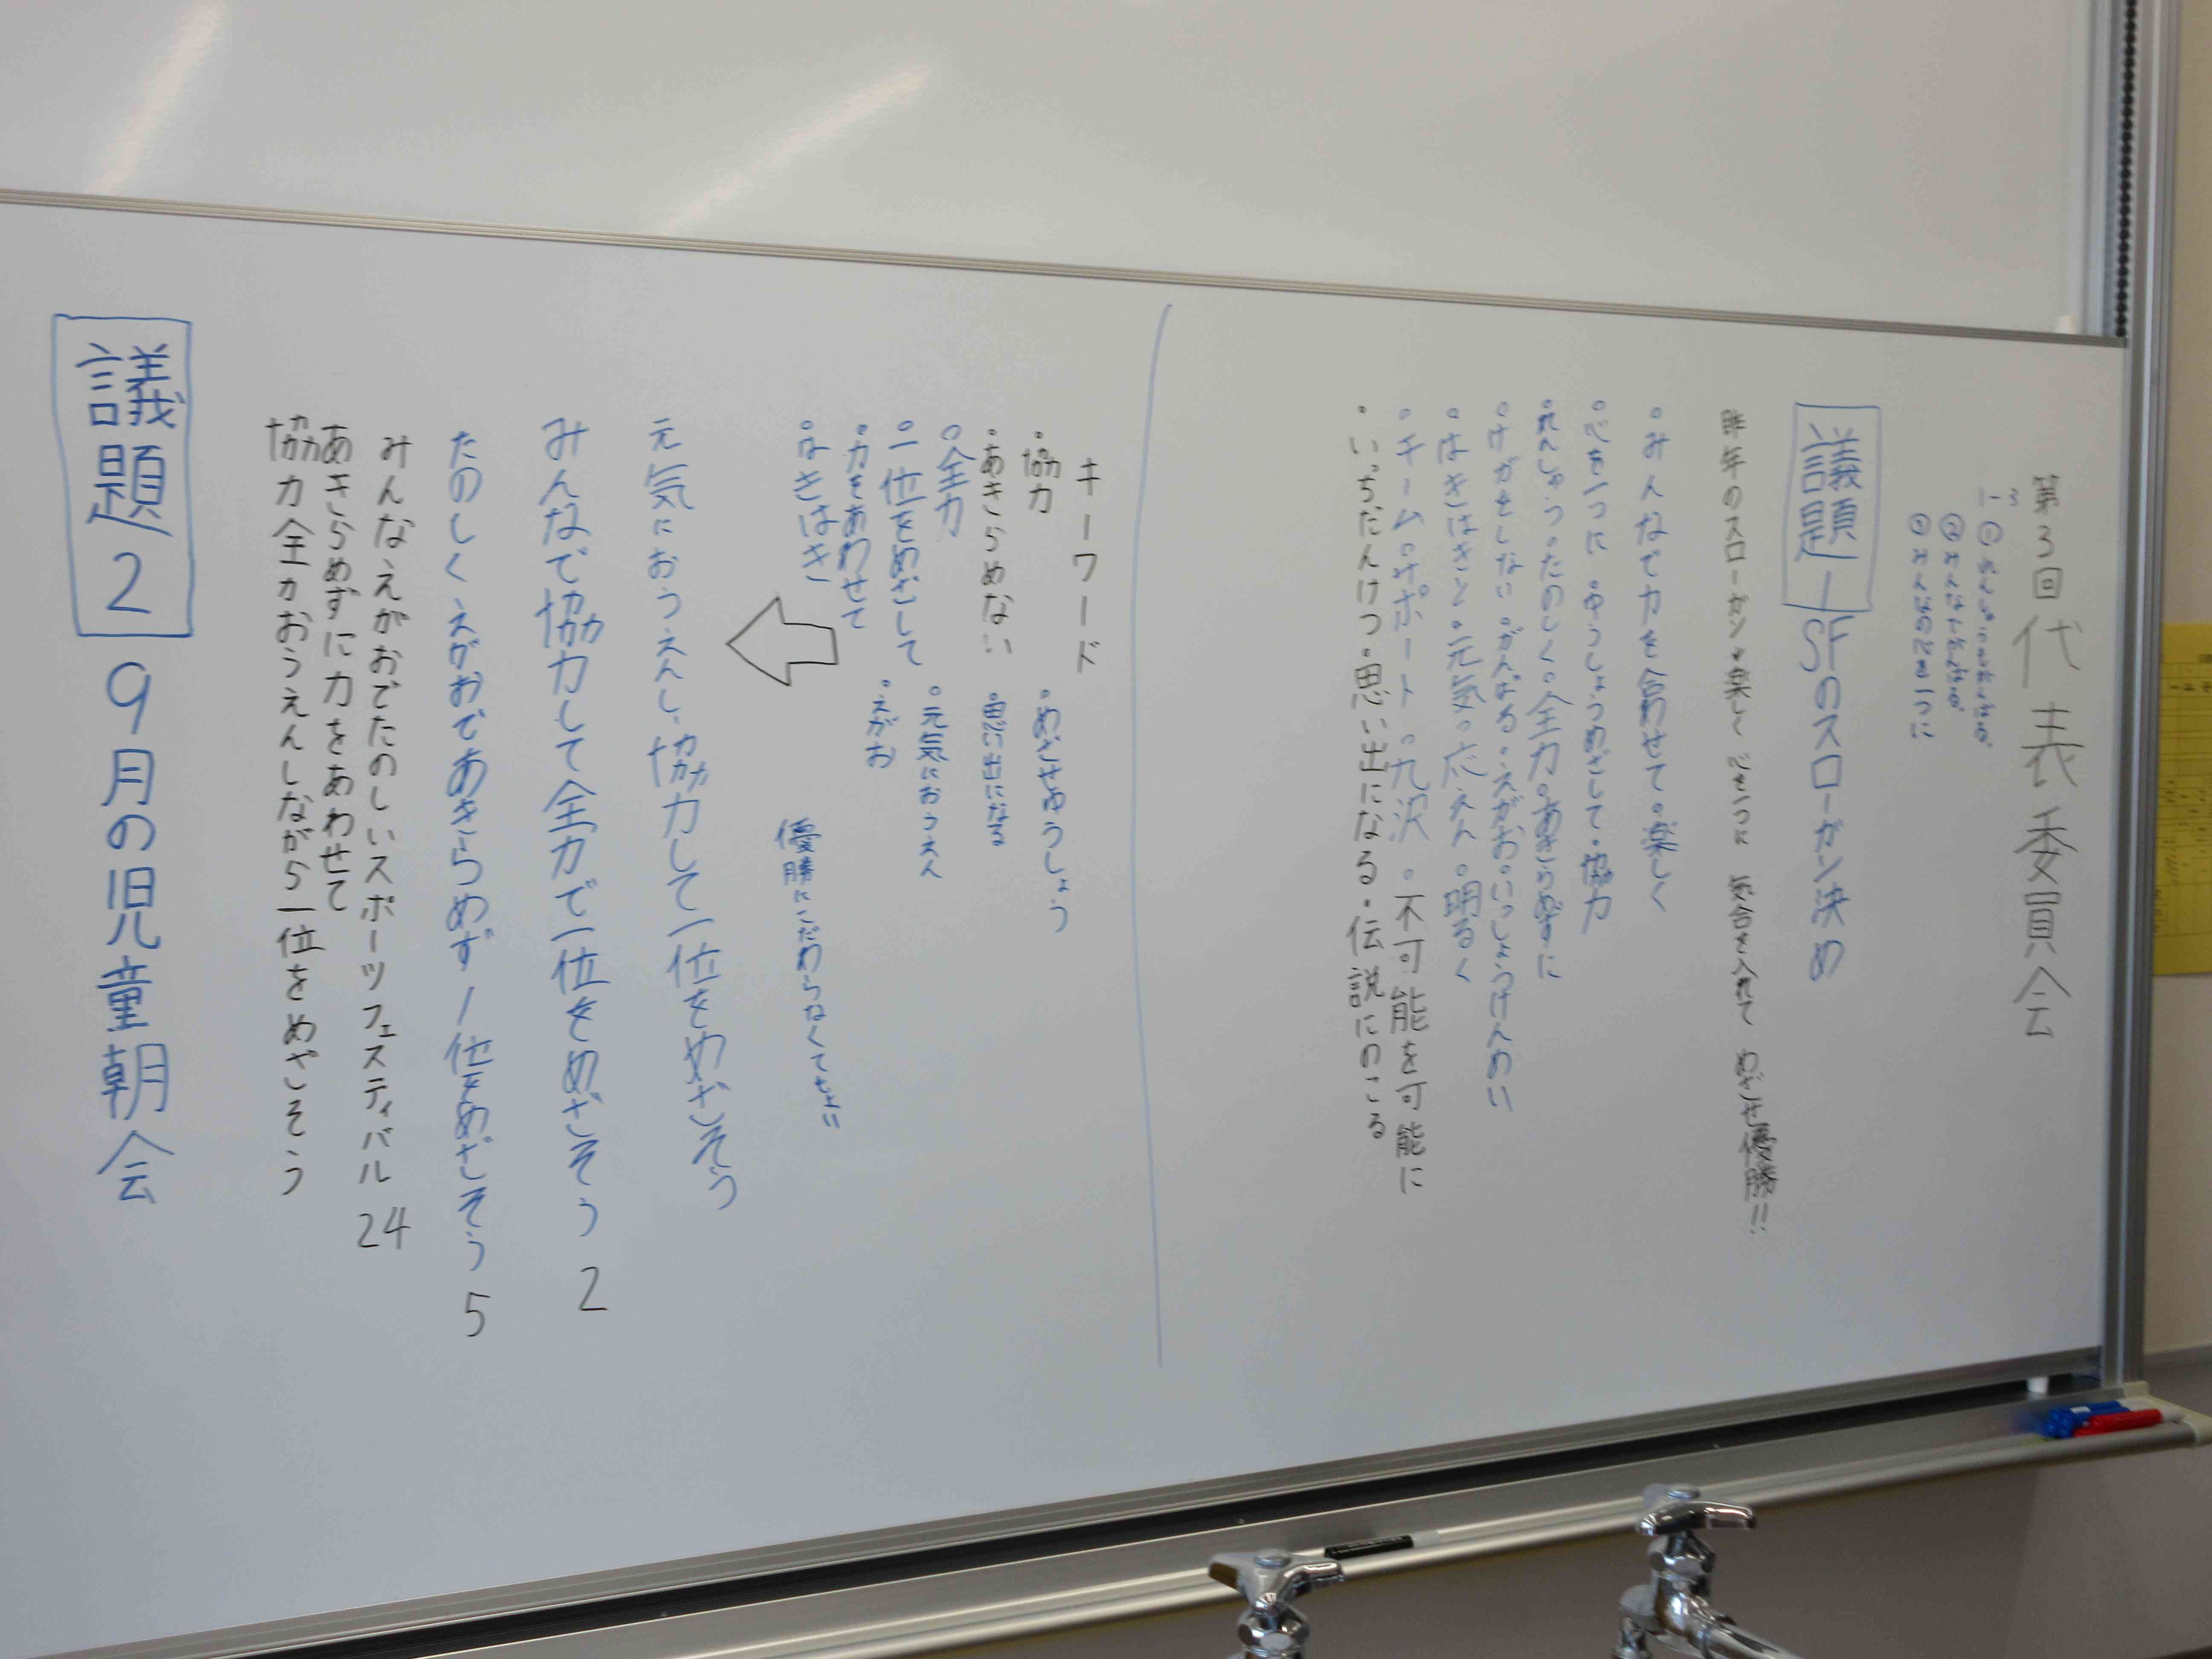 第3回代表委員会
1-3
② みんなで
③ みんなの心を一つに
議題1 SFのスローガン決め
昨年のスローガン→楽しく 心を一つに 気合を入れて めざせ優勝!!
・みんなで力を合わせて・楽しく
・心を一つに・ゆうしょうめざして・協力
・れんしゅう・たのしく・全力・あきらめずに
・けがをしない・がんばる・えがお・いっしょうけんめい
・はきはきと・元気・応えん・明るく
・チーム・サポート・九沢・不可能を可能に
・いっちだんけつ・思い出になる・伝説にのこる
キーワード
・協力 ・めざせゆうしょう
・あきらめない ・思い出になる
・全力 ・元気におうえん
・一位をめざして
・力をあわせて ・えがお
・はきはき
優勝にこだわらなくてもよい
元気におうえんし、協力して一位をめざそう
みんなで協力して全力で一位をめざそう 2
たのしくえがおであきらめず1位をめざそう 5
みんなえがおでたのしいスポーツフェスティバル 24
あきらめずに力をあわせて
協力全力おうえんしながら一位をめざそう
議題2 9月の児童朝会